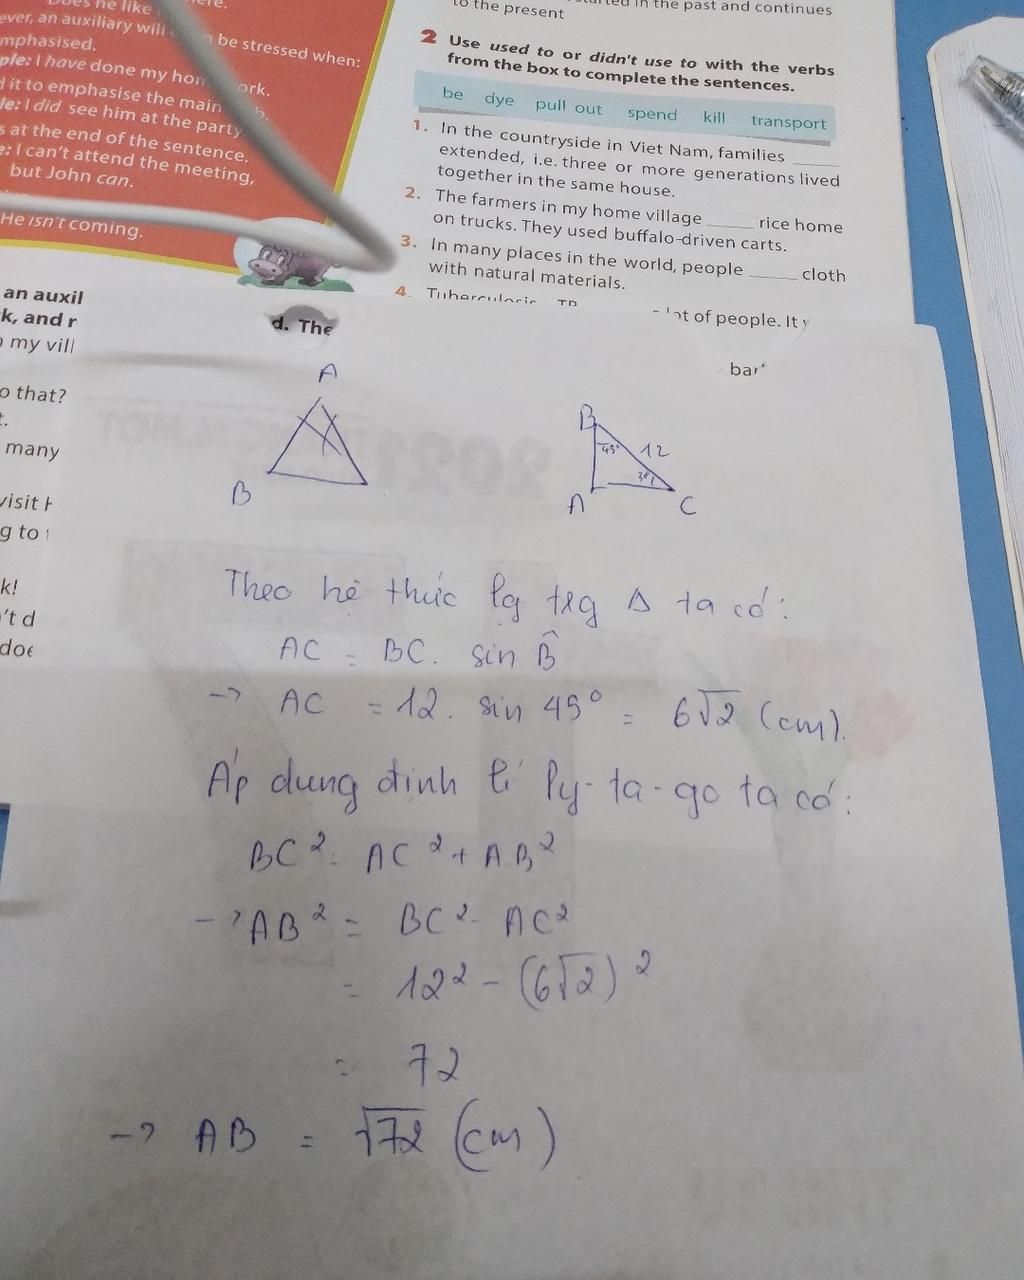 here.
Does he like
ever, an auxiliary will be stressed when:
mphasised.
ple: I have done my hom ork.
d it to emphasise the main
le: I did see him at the party
s at the end of the sentence.
e: I can't attend the meeting,
but John can.
He isn't coming.
an auxil
k, and r
my vill
o that?
many
visit
g to
k!
't d
doe
in the past and continues
to the present
2 Use used to or didn't use to with the verbs
from the box to complete the sentences.
be dye pull out spend kill transport
1. In the countryside in Viet Nam, families ____
extended, i.e. three or more generations lived
together in the same house.
2. The farmers in my home village ____ rice home
on trucks. They used buffalo-driven carts.
3. In many places in the world, people ____ cloth
with natural materials.
4. Tuberculosis TB lot of people. It
d. The
bar
A
B
B
45°
12
A
C
Theo hệ thức lg trg Δ ta có:
AC = BC. sin B̂
-> AC = 12. sin 45° = 6√2 (cm).
Áp dung định lí Py-ta-go ta có:
BC² = AC² + AB²
-> AB² = BC² - AC²
= 12² - (6√2)²
= 72
-> AB = √72 (cm)